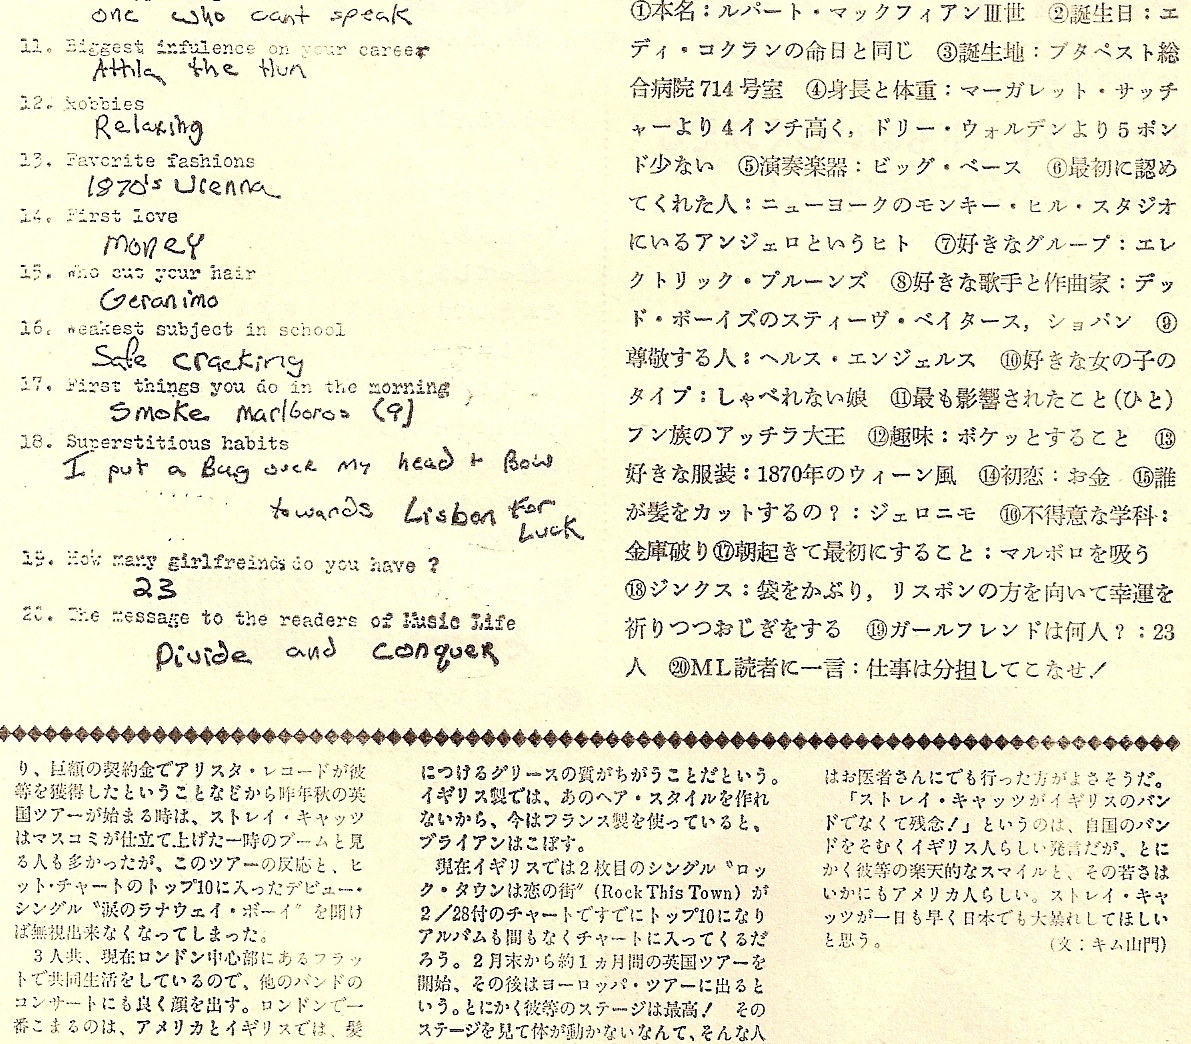 one who cant speak
11. Biggest infulence on your career
Attila the Hun
12. Hobbies
Relaxing
13. Favorite fashions
1870's Vienna
14. First love
Money
15. Who cut your hair
Geranimo
16. Weakest subject in school
Safe cracking
17. First things you do in the morning
Smoke Marlboros (9)
18. Superstitious habits
I put a Bag over my head + Bow
towards Lisbon for
Luck
19. How many girlfreinds do you have ?
23
20. The message to the readers of Music Life
Divide and Conquer
①本名：ルパート・マックフィアンⅢ世　②誕生日：エ
ディ・コクランの命日と同じ　③誕生地：ブタペスト総
合病院714号室　④身長と体重：マーガレット・サッチ
ャーより4インチ高く，ドリー・ウォルデンより5ポン
ド少ない　⑤演奏楽器：ビッグ・ベース　⑥最初に認め
てくれた人：ニューヨークのモンキー・ヒル・スタジオ
にいるアンジェロというヒト　⑦好きなグループ：エレ
クトリック・プルーンズ　⑧好きな歌手と作曲家：デッ
ド・ボーイズのスティーヴ・ベイタース，ショパン　⑨
尊敬する人：ヘルス・エンジェルス　⑩好きな女の子の
タイプ：しゃべれない娘　⑪最も影響されたこと(ひと)
フン族のアッチラ大王　⑫趣味：ボケッとすること　⑬
好きな服装：1870年のウィーン風　⑭初恋：お金　⑮誰
が髪をカットするの？：ジェロニモ　⑯不得意な学科：
金庫破り⑰朝起きて最初にすること：マルボロを吸う
⑱ジンクス：袋をかぶり，リスボンの方を向いて幸運を
祈りつつおじぎをする　⑲ガールフレンドは何人？：23
人　⑳ML読者に一言：仕事は分担してこなせ！
り、巨額の契約金でアリスタ・レコードが彼
等を獲得したということなどから昨年秋の英
国ツアーが始まる時は、ストレイ・キャッツ
はマスコミが仕立て上げた一時のブームと見
る人も多かったが、このツアーの反応と、ヒ
ット・チャートのトップ10に入ったデビュー・
シングル〝涙のラナウェイ・ボーイ〟を聞け
ば無視出来なくなってしまった。
　3人共、現在ロンドン中心部にあるフラッ
トで共同生活をしているので、他のバンドの
コンサートにも良く顔を出す。ロンドンで一
番こまるのは、アメリカとイギリスでは、髪
につけるグリースの質がちがうことだという。
イギリス製では、あのヘア・スタイルを作れ
ないから、今はフランス製を使っていると、
ブライアンはこぼす。
　現在イギリスでは2枚目のシングル〝ロッ
ク・タウンは恋の街〟(Rock This Town) が
2／28付のチャートですでにトップ10になり
アルバムも間もなくチャートに入ってくるだ
ろう。2月末から約1ヵ月間の英国ツアーを
開始、その後はヨーロッパ・ツアーに出ると
いう。とにかく彼等のステージは最高！　その
ステージを見て体が動かないなんて、そんな人
はお医者さんにでも行った方がよさそうだ。
　「ストレイ・キャッツがイギリスのバン
ドでなくて残念！」というのは、自国のバン
ドをそむくイギリス人らしい発言だが、とに
かく彼等の楽天的なスマイルと、その若さは
いかにもアメリカ人らしい。ストレイ・キャ
ッツが一日も早く日本でも大暴れしてほしい
と思う。　(文：キム山門)